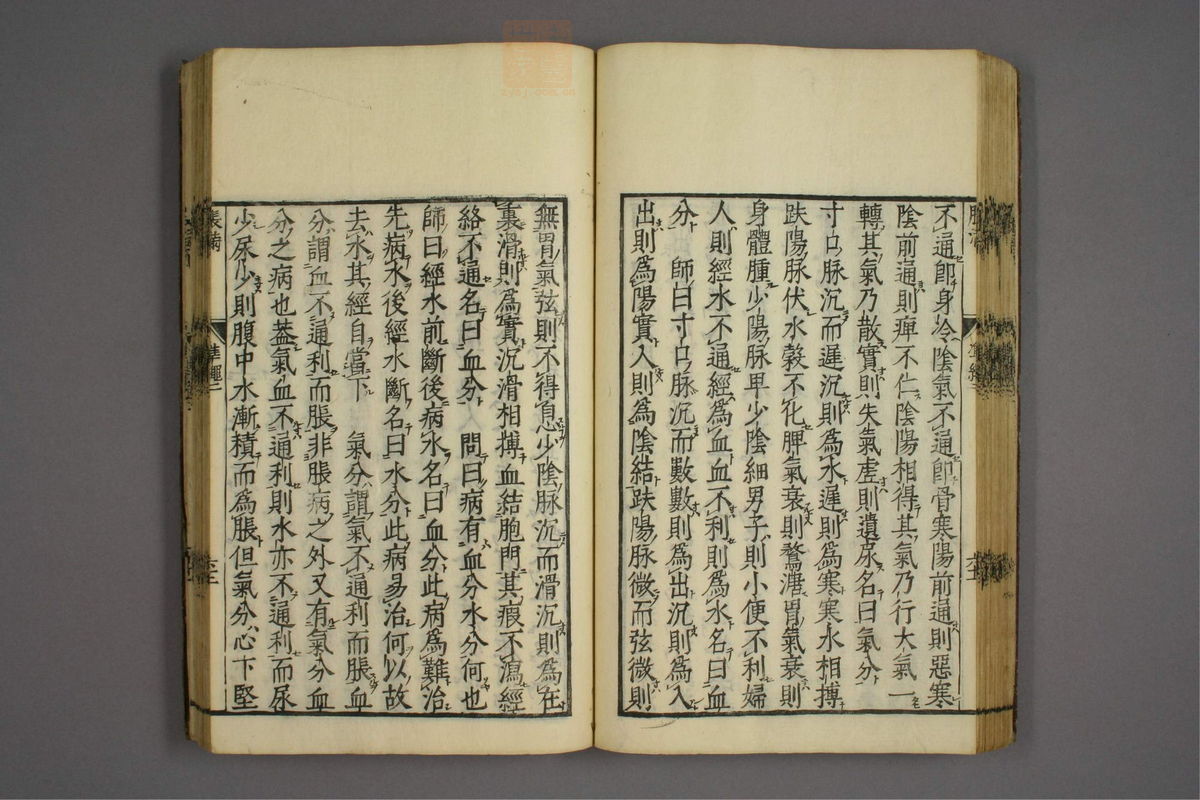 不通即身冷陰氣不通即骨寒陽前通則惡寒
陰前通則痺不仁陰陽相得其氣乃行大氣一
轉其氣乃散實則失氣虛則遺尿名曰氣分
寸口脉沉而遲沉則爲水遲則爲寒寒水相搏
趺陽脉伏水榖不化脾氣衰則鶩溏胃氣衰則
身體腫少陽脉卑少陰細男子則小便不利婦
人則經水不通經爲血血不利則爲水名曰血
分　師曰寸口脉沉而數數則爲出沉則爲入
出則爲陽實入則爲陰結趺陽脉微而弦微則
無胃氣弦則不得息少陰脉沉而滑沉則爲在
裏滑則爲實沉滑相搏血結胞門其瘕不瀉經
絡不通名曰血分　問曰病有血分水分何也
師曰經水前斷後病水名曰血分此病爲難治
先病水後經水斷名曰水分此病易治何以故
去水其經自當下　氣分謂氣不通利而脹血
分謂血不通利而脹非脹病之外又有氣分血
分之病也蓋氣血不通利則水亦不通利而尿
少尿少則腹中水漸積而爲脹但氣分心下堅
脹滿
準繩二
zysj.com.cn